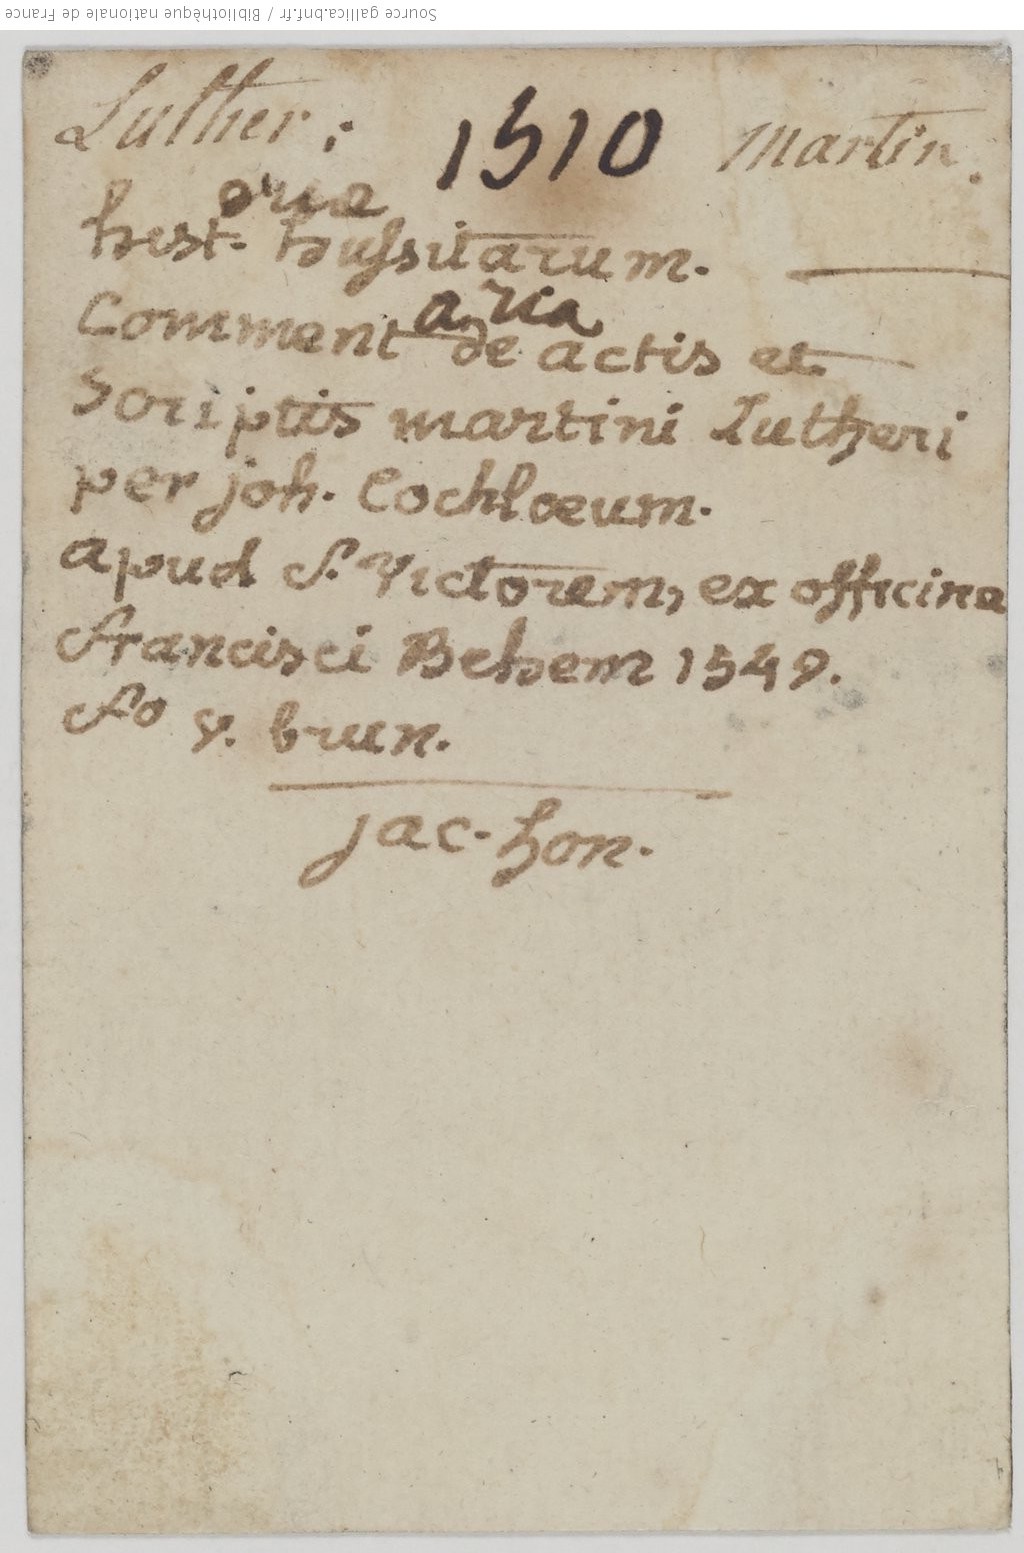 Source gallica.bnf.fr / Bibliothèque nationale de France
Luther: 1510 Martin.
oriæ
hist. hussitarum.
aria
Comment de actis et
Scriptis martini Lutheri
per joh. Cochlœum.
apud S. Victorem, ex officina
francisci Behem 1549.
fo v. brun.
jac. hon.